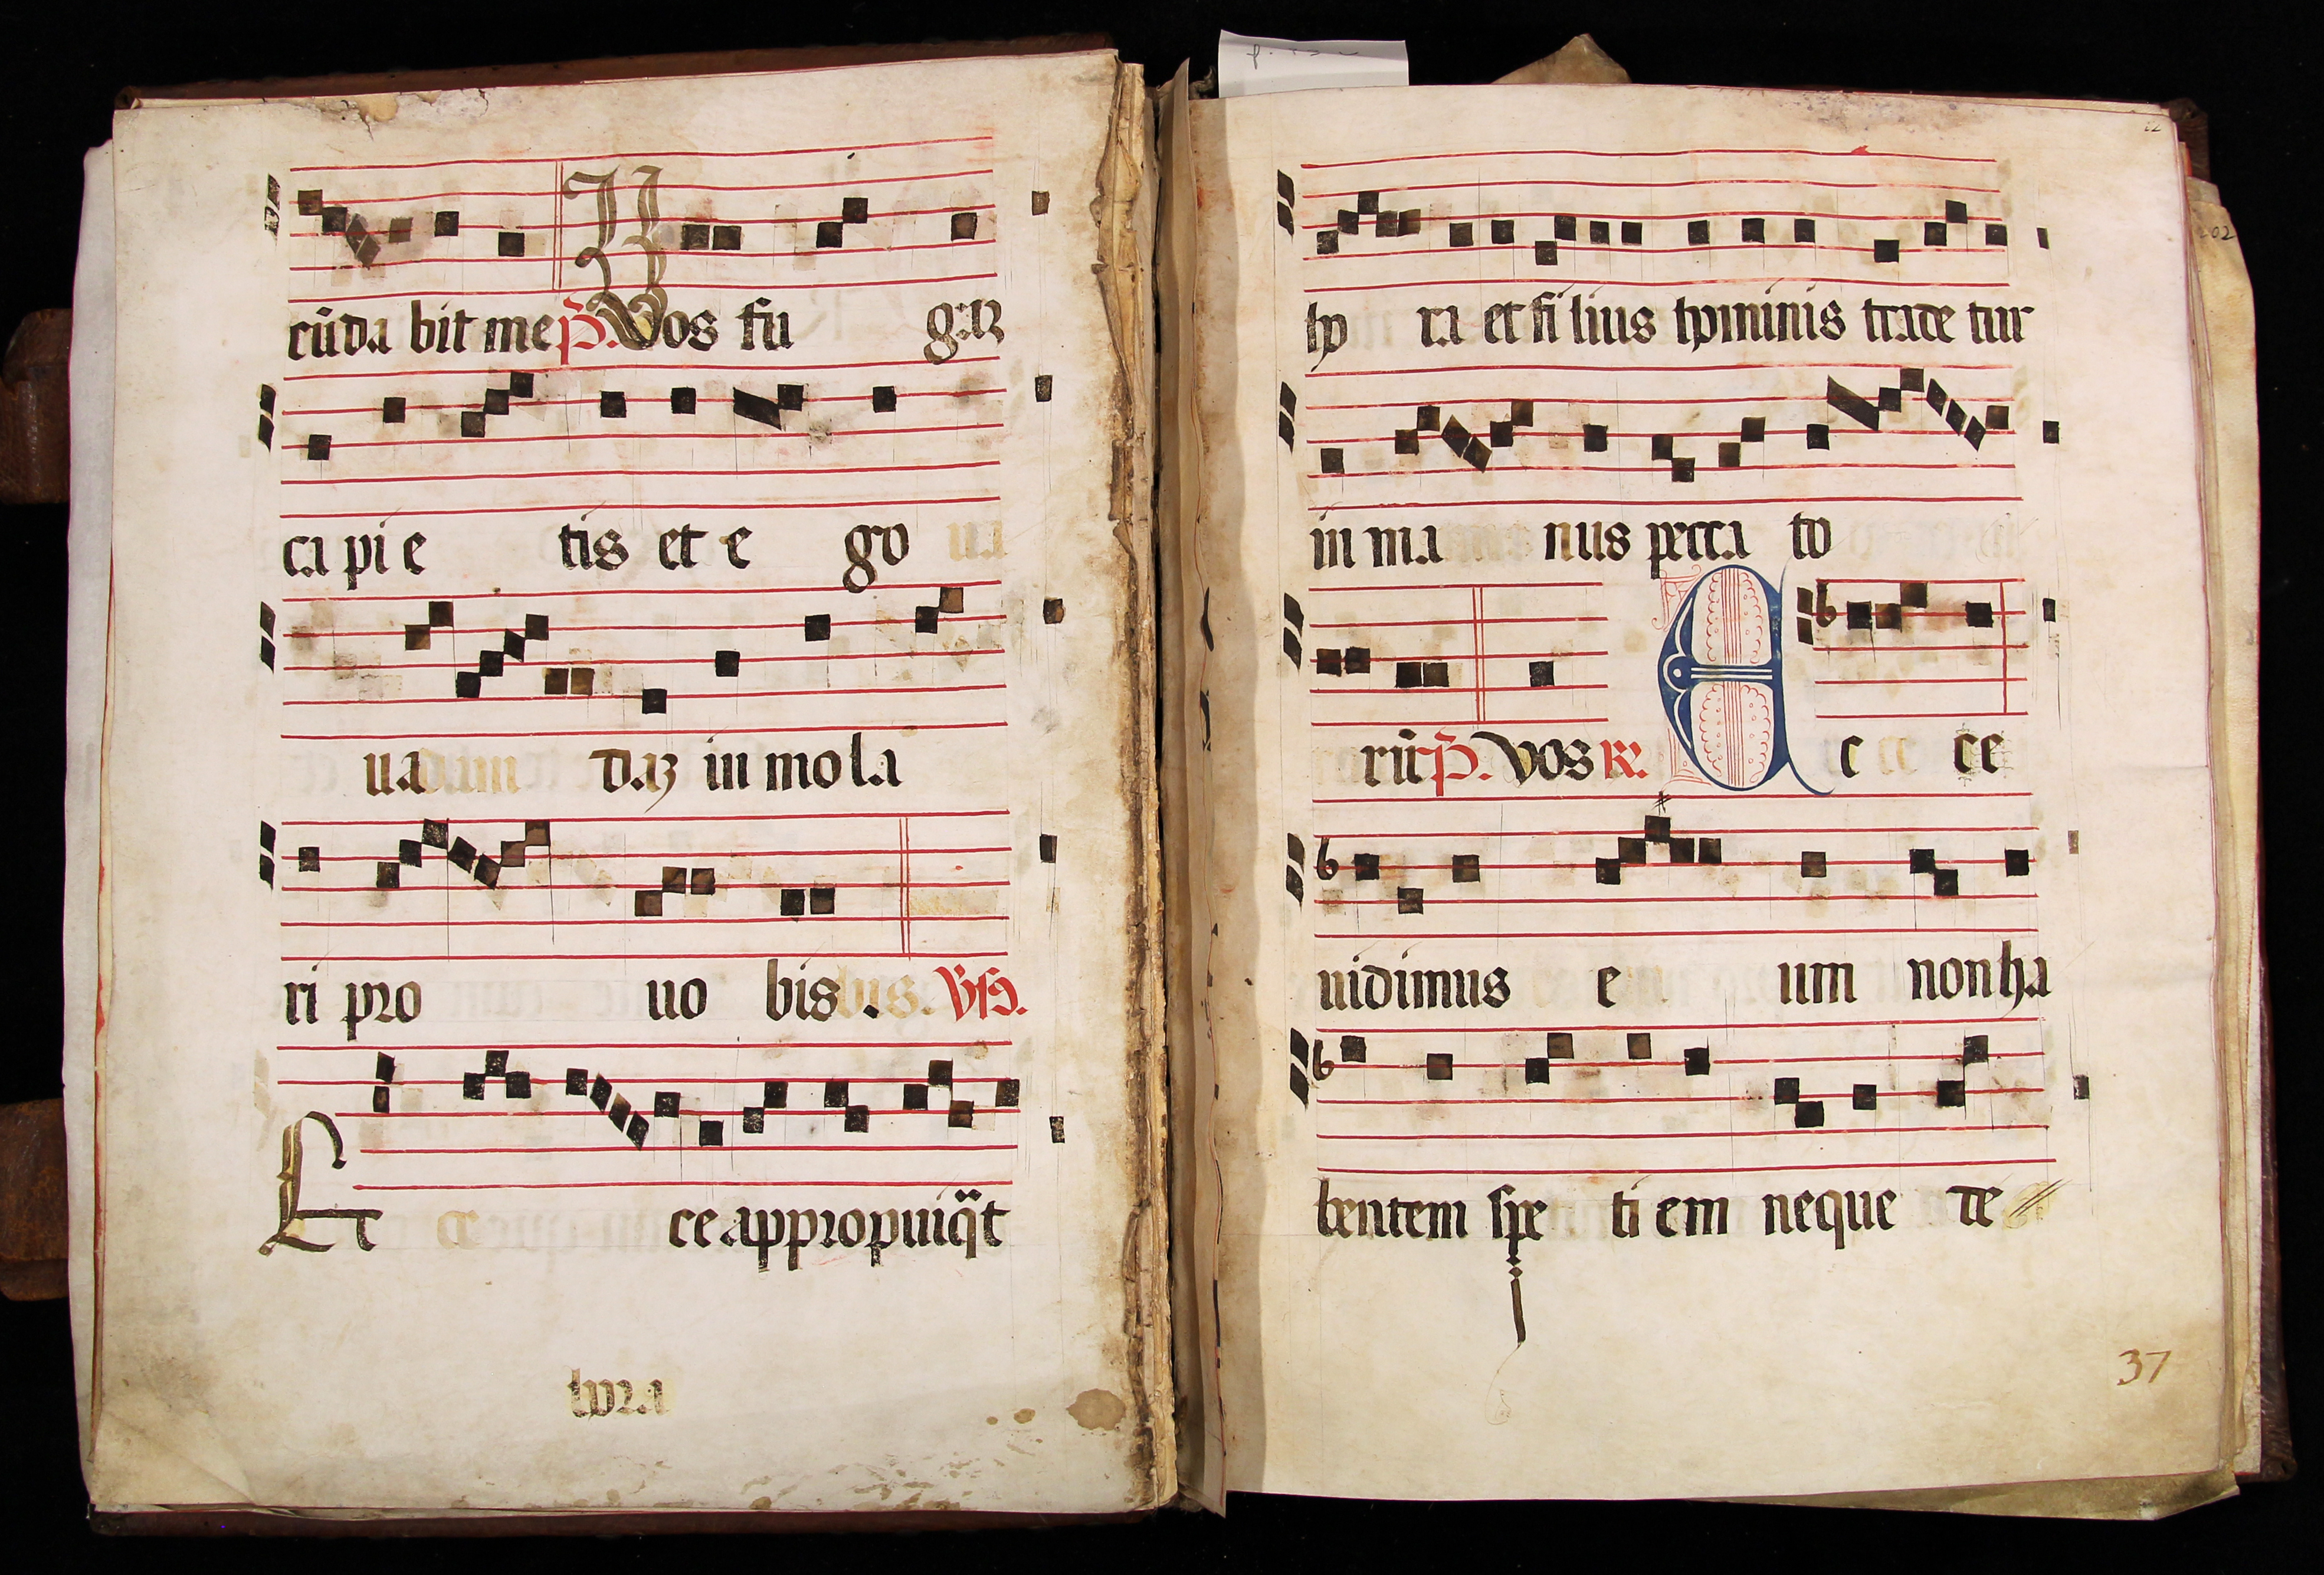 cūda bit me p̄. Vos fu gaꝫ
ca pi e tis et e go ua
ua dam daꝫ in mo la
ri pro uo bis. bis. Vſꝯ.
Ec ce ce appropuiq̄t
hora
ho ra et fi lius hominis trade tur
in ma nus pecca to
rū p̄. vos ꝶ. E c ce ce
uidimus e um non ha
bentem spe ti em neque de
37